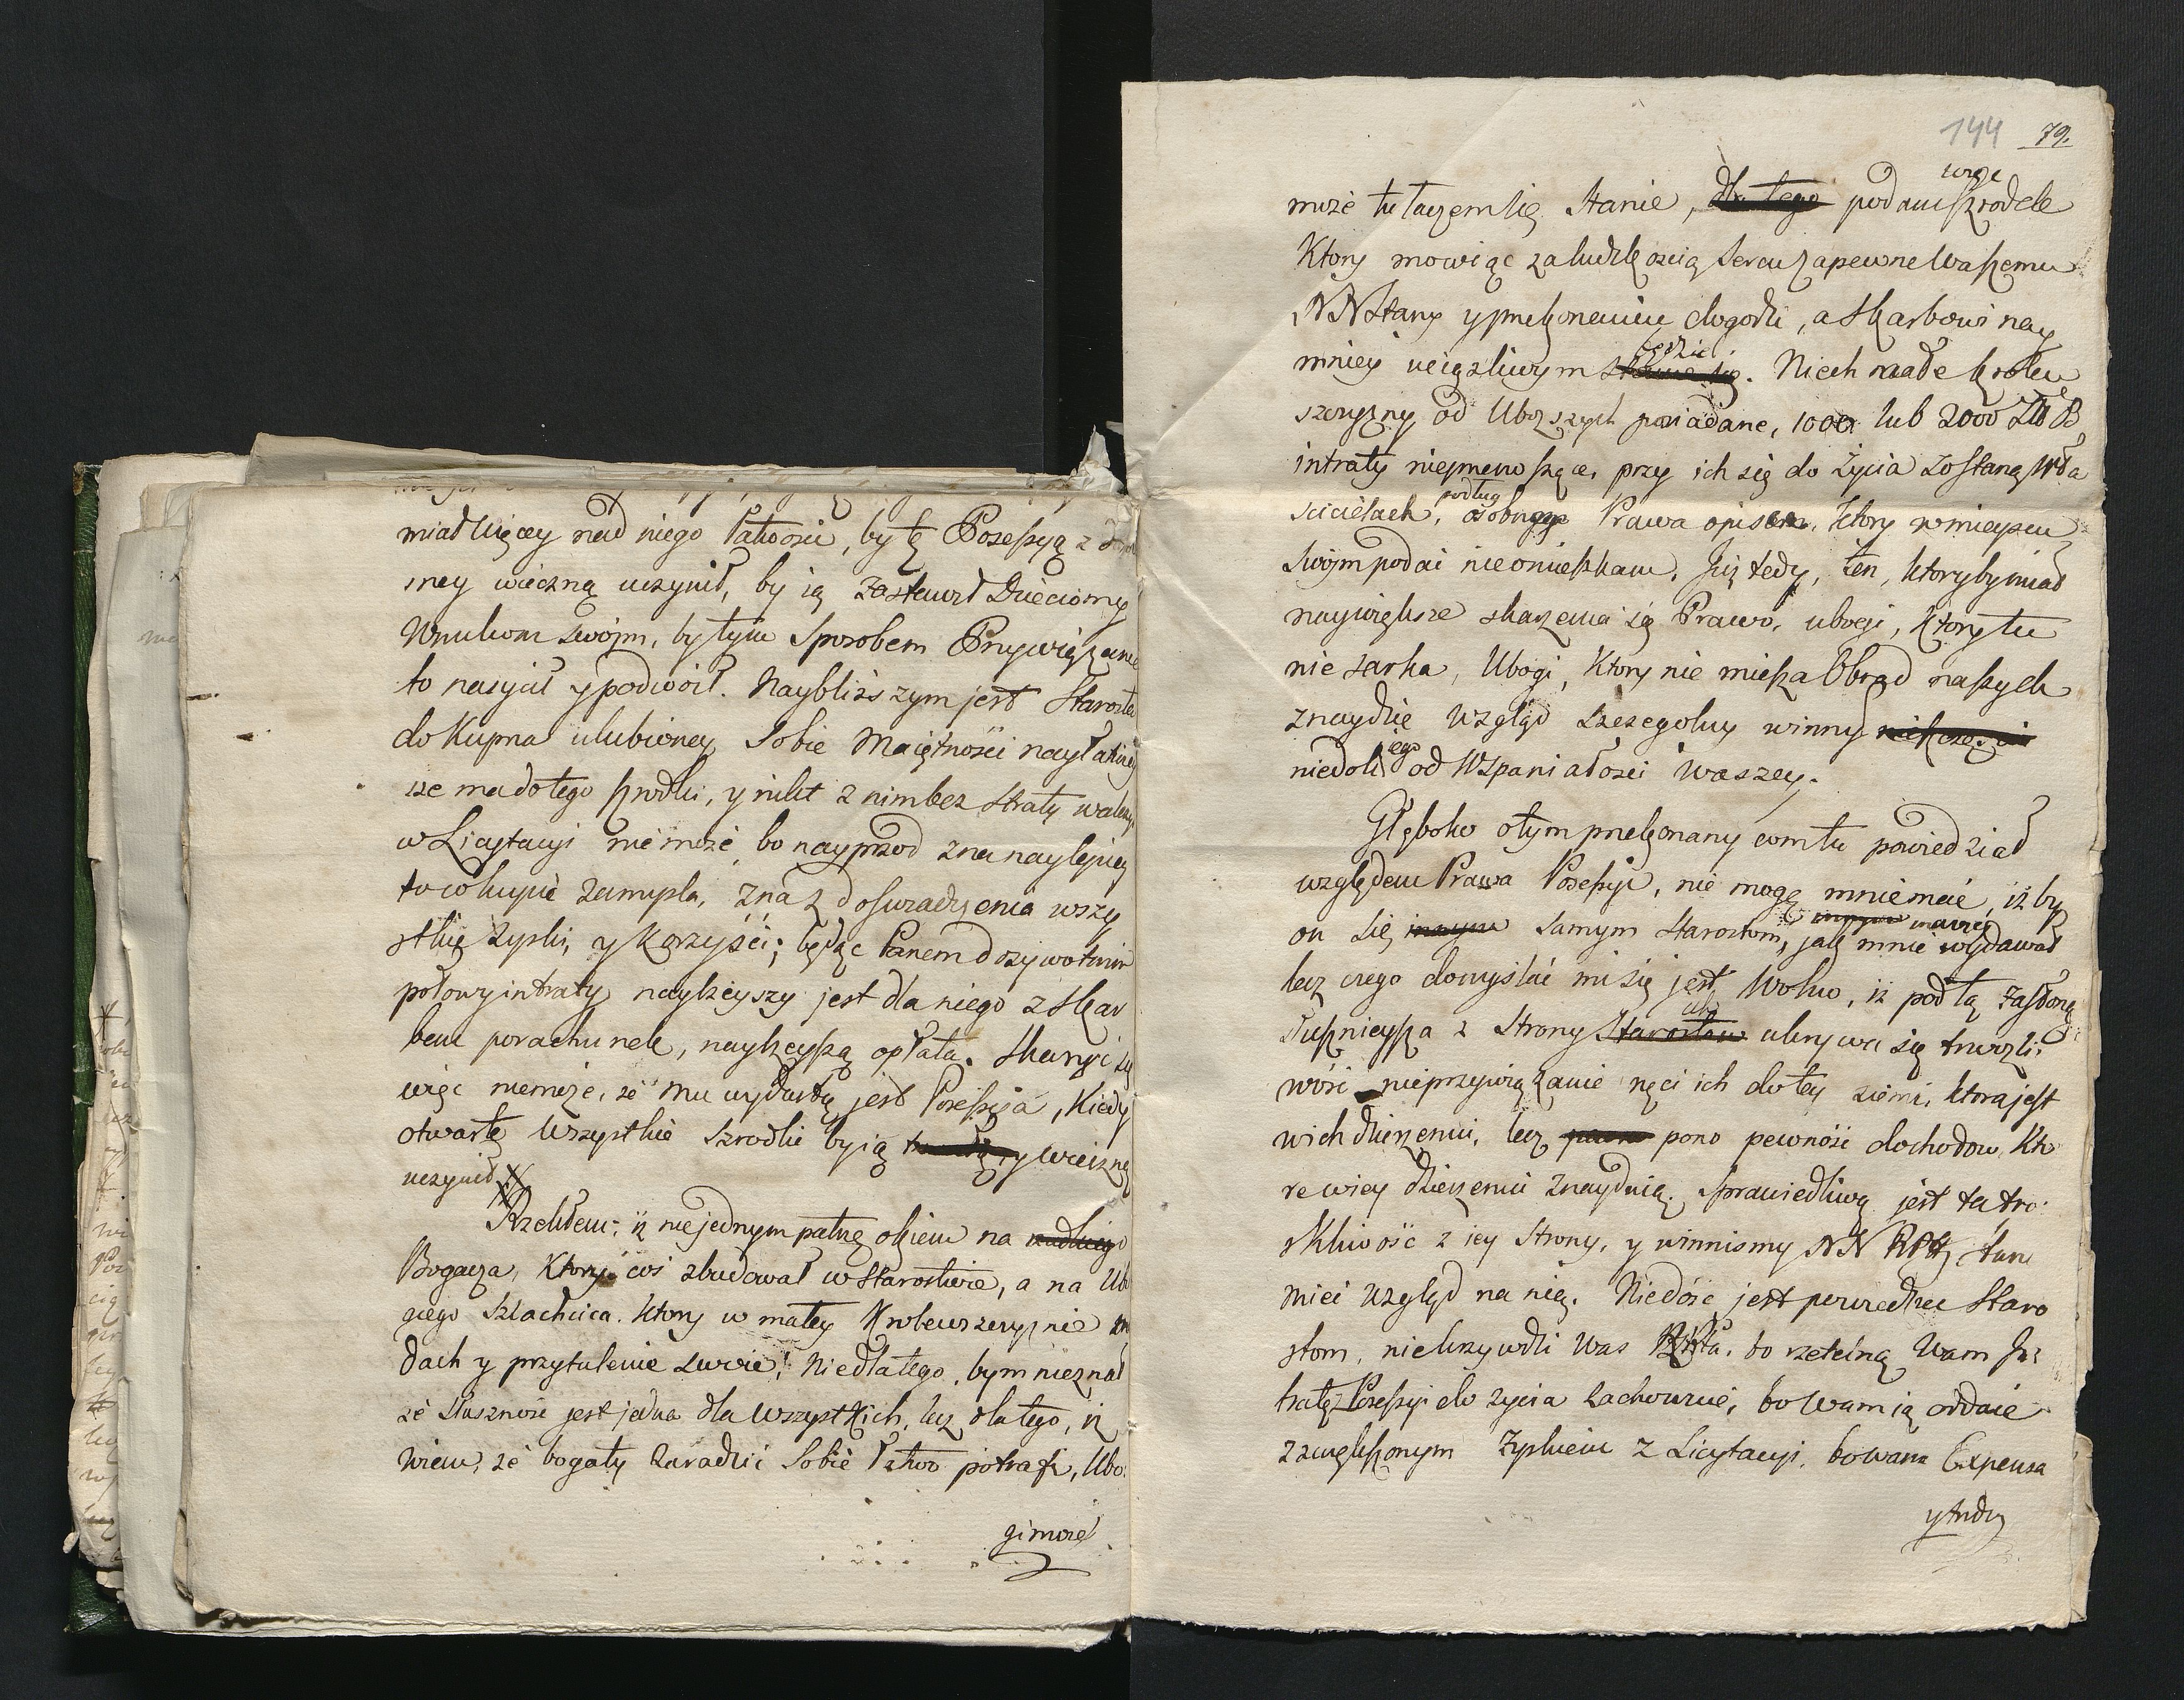 miał więcey nad niego łatwości, by tę Possessyą z
mey wieczną uczynił, by ią zostawił Dzieciom y
Wnukom swoim, by tym sposobem Przywiązanie
to nasycił y podwoił. Naybliższym jest Starosta
do Kupna ulubioney Sobie Maiętności nayłatwiey
sze ma do tego szrodki, y nikt z nim bez straty walczyć
w Licytacyi nie może, bo nayprzod zna naylepiey
to co kupić zamyśla, zna z doświadczenia wszy
stkie Zyski, y Korzyści; będąc Panem dożywotnim
połowy intraty naylżeyszy jest dla niego z Skar
bem porachunek, naylżeyszą opłata. Skarżyć się
więc niemoże, że mu wydartą jest Possessya, Kiedy
otwarte Wszystkie Szrodki by ią wieczną
uczynił
Rzekłem; iż nie jednym patrzę okiem na
Bogacza, Ktory coś zbudował w Starostwie, a na Ubo
giego Szlachcica. Ktory w małey Krolewszczyznie
dach y przytulenie swoie! Nie dlatego, bym nieznał
że Słuszność jest jedna dla Wszystkich, lecz dlatego, iż
wiem, że bogaty zaradzić Sobie łatwo potrafi, Ubo
gi może
144 79.
może tułaczem się Stanie, dla tego podam szrodek
Ktory mowiąc z ludzkością Sercu zapewne Waszemu
NN Stany y przekonaniu dogodzi, a Skarbowi nay
mniey uciążliwym będzie. Niech małe krolew
szczyzny od Uboższych posiadane, 1000 lub 2000 Zł
intraty nieprzenoszące, przy ich się do Życia zostaną Wła
ścicielach, podług Prawa opisem, ktory w mieyscu
swoim podać nie omieszkam. Już tedy, ten, ktoryby miał
naywiększe skarżenia się Prawo, ubogi, Ktory tu
nie sarka, Ubogi, Ktory nie miesza Obrad naszych
znaydzie Wzgląd szczegolny winny
niedoli jego od Wspaniałości waszey.
Głęboko o tym przekonany com tu powiedział
względem Prawa Possessyi, nie mogę mniemać, iż by
on się samym Starostom, jak mnie wydawał
lecz czego domyślać mi się jest Wolno, iż pod tą zasłoną
słusznieysza z Strony ukrywa się troskli
wość nieprzywiązanie nęci ich do tey ziemi, ktora jest
w ich dzierżeniu, lecz pono pewność dochodow, Kto
re w iey dzierżeniu znayduią. Sprawiedliwą jest ta tro
skliwość z iey Strony, y winnismy NN Stan
mieć wzgląd na nią. Niedość jest powiedzieć Staro
stom, nie krzywdzi Was, bo rzetelną Wam In
tratę z Possessyi do życia zachowuie, bo Wam ią oddaie
z zwiększonym Zyskiem z Licytacyi, bo wam Expensa
y trudy